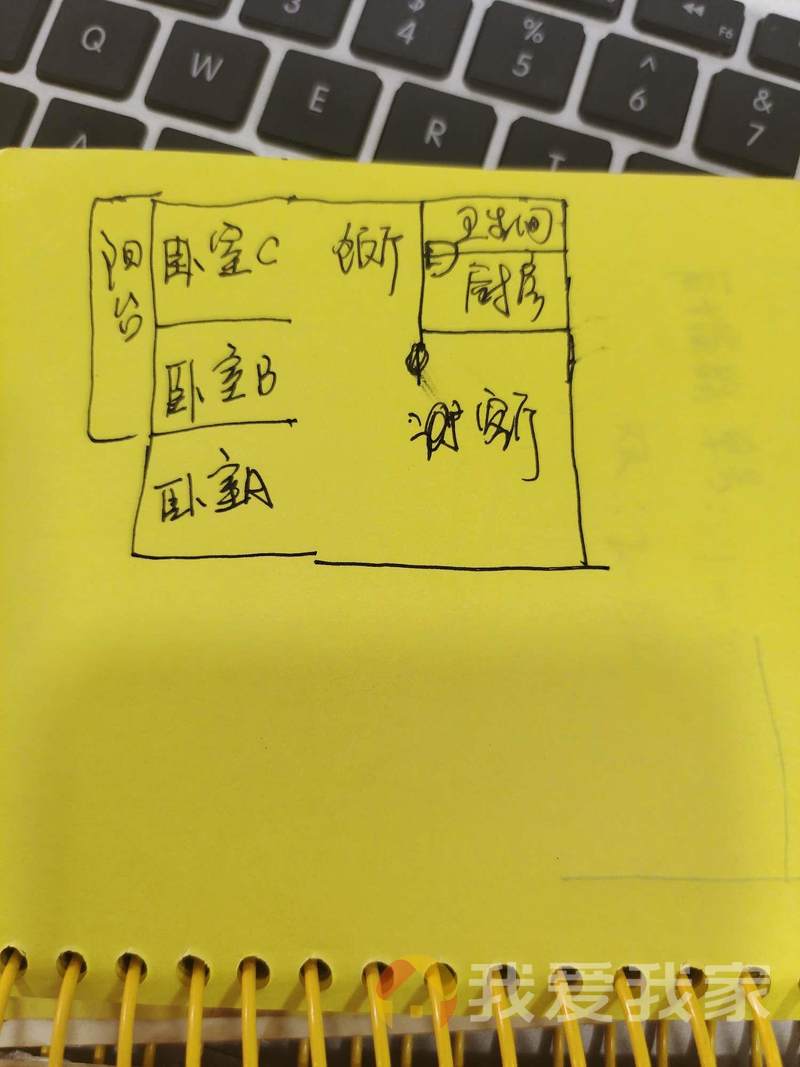 3
$
4
%
5
^
6
F6
&
7
Q
W
E
R
T
A
阳台
卧室C
饭厅
卫生间
厨房
卧室B
客厅
卧室A
我爱我家